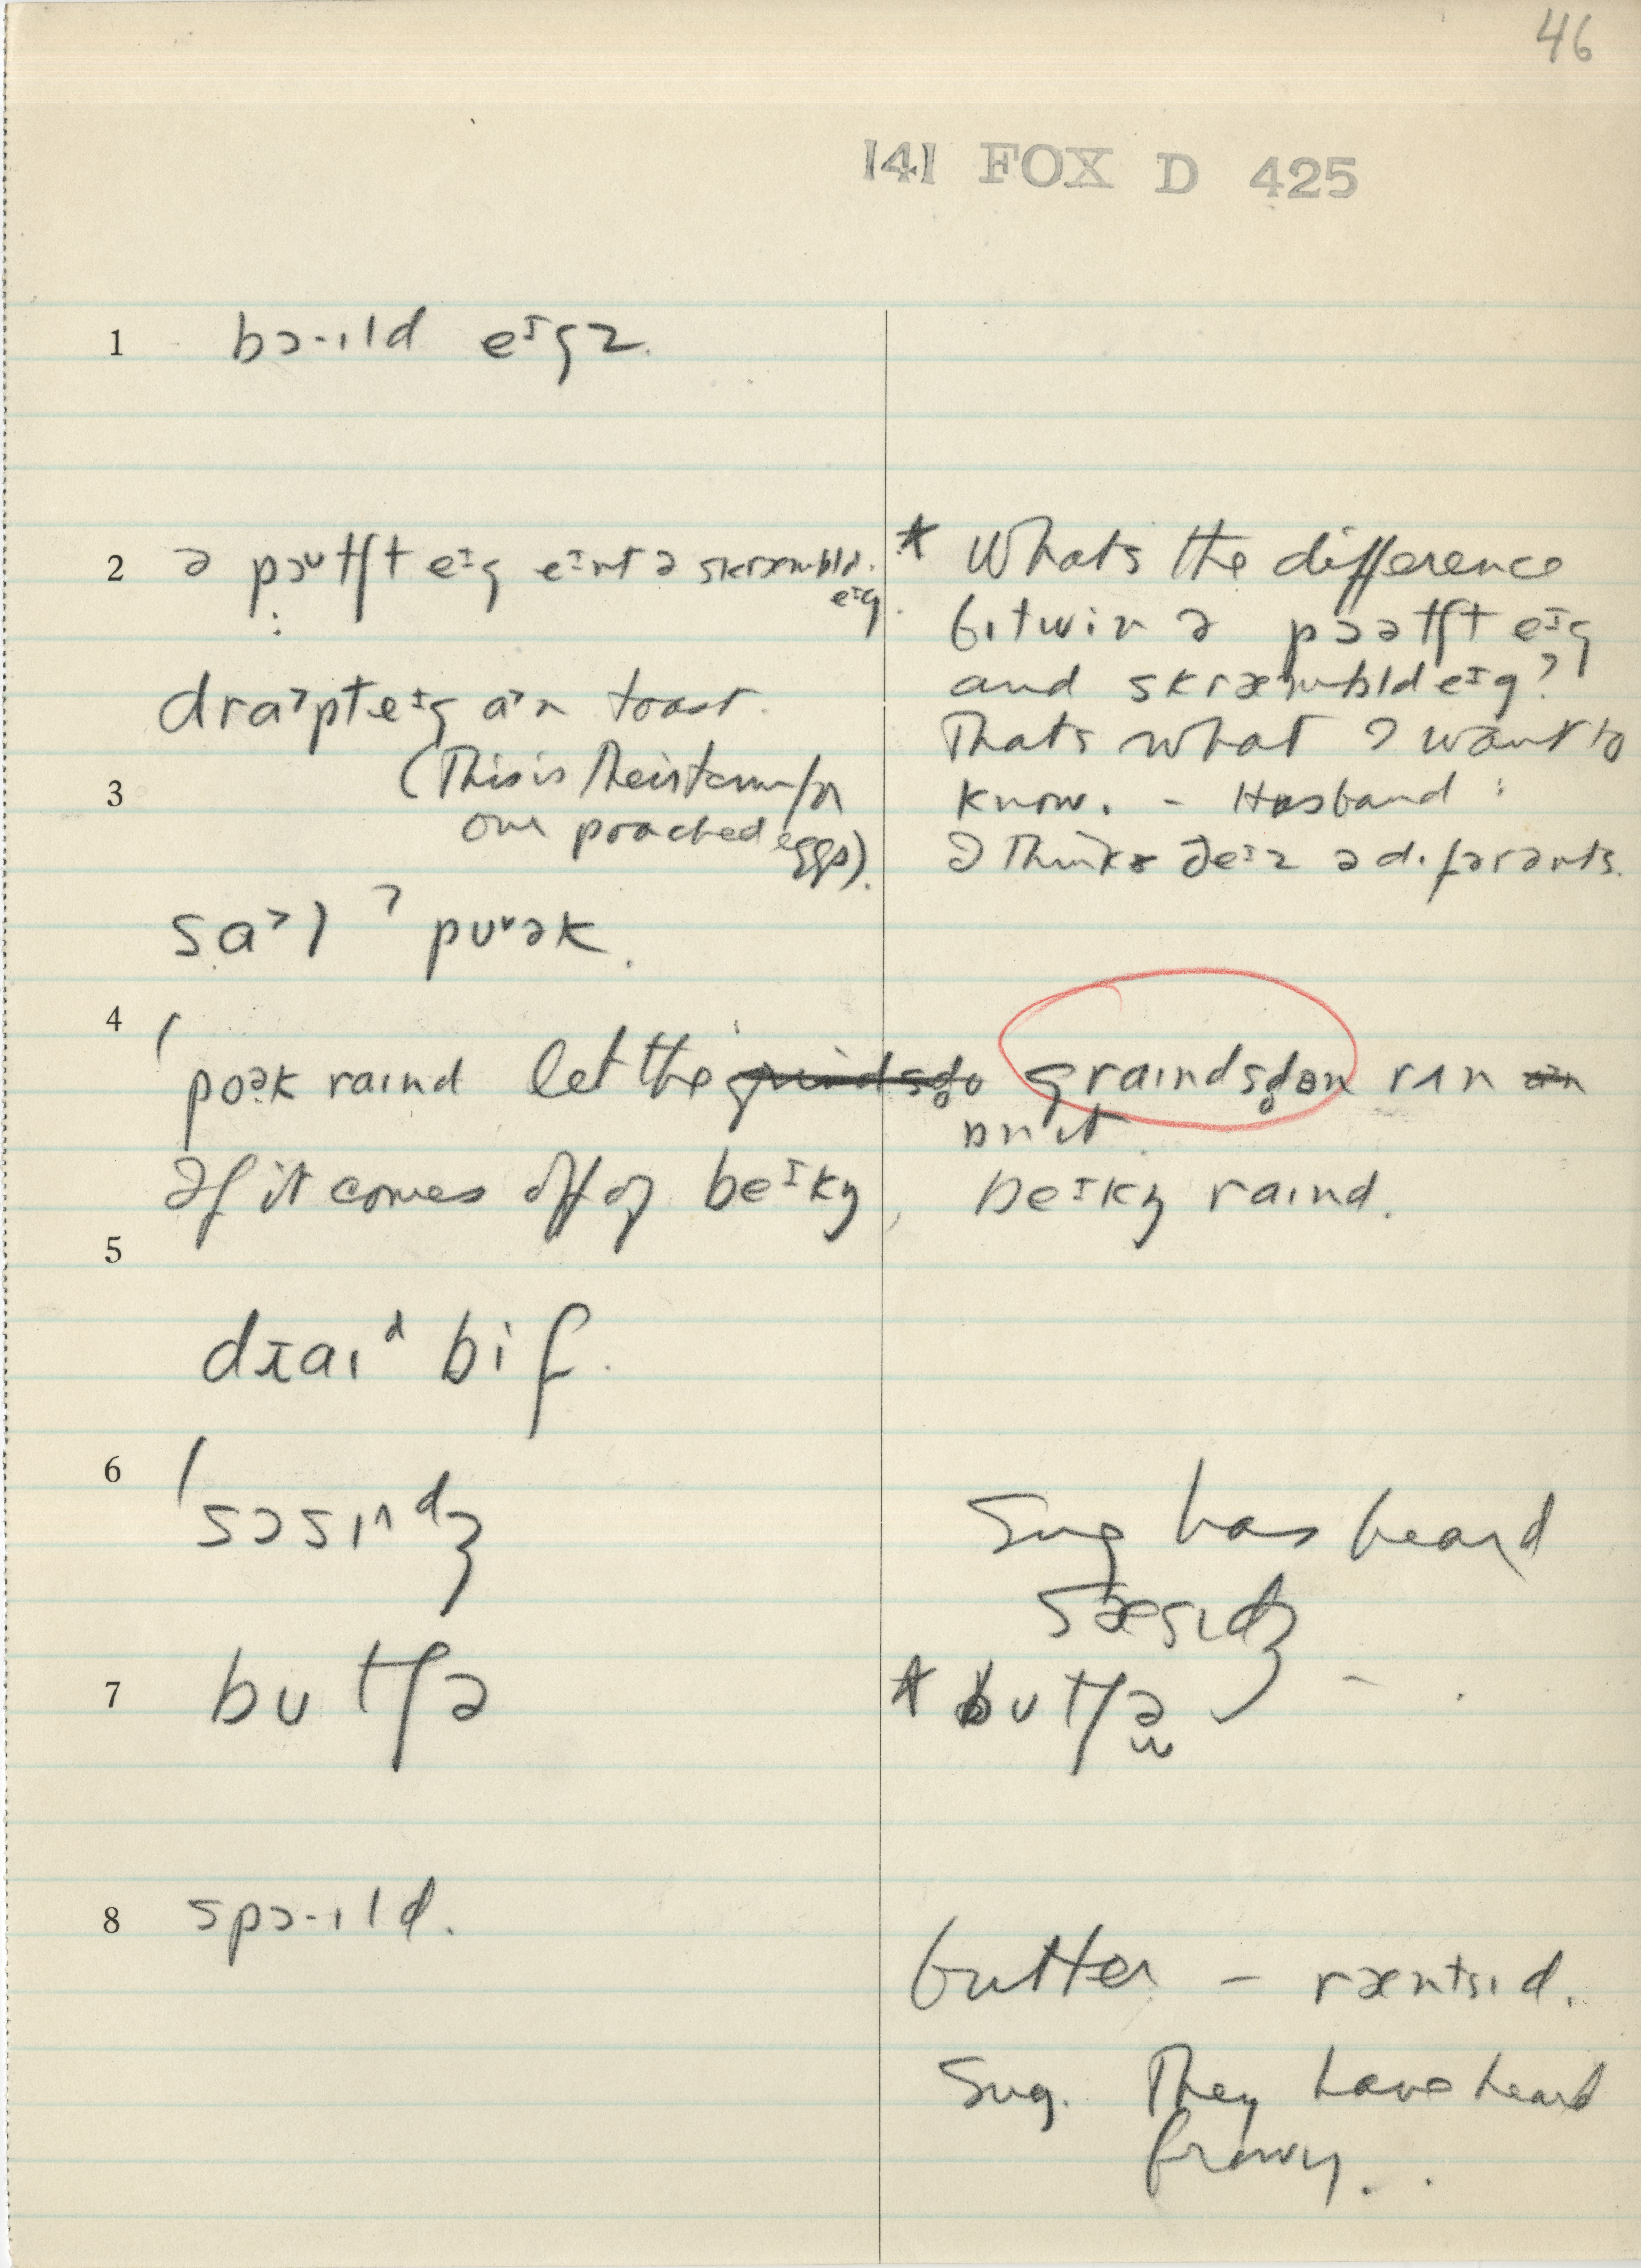 46
141 FOX D 425
1 bɔ·ɪld eᶦgz.
2 ə pɔᶷtʃt eᶦg eᶦnt ə skræmbld. eᶦg.
* Whats the difference
bɪtwin ə pɔətʃt eᶦg
and skræmbld eᶦg?
Thats what I want to
know. - Husband :
I think ðeᶦz ə dɪfərənts.
dra˃pt eᶦg a˃n toast.
3 (This is their term for
our poached eggs).
sa˃l ˀ pᴜᵛək.
4 ˈpoək raɪnd let the graɪndsdo graɪndsdon rʌn
on it.
If it comes off of beᶦkŋ, beᶦkŋ raɪnd.
5 draɪᵈ bif.
6 ˈsɔsɪnᵈʒ
Sug has heard
sæsɪdʒ - .
7 bᴜtʃə
* bᴜtʃə
8 spɔ·ɪld.
butter - ræntsɪd.
Sug. They have heard
frowy. .